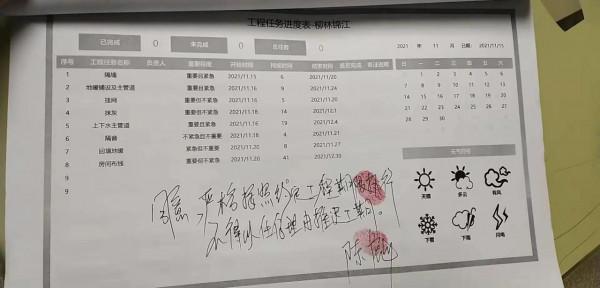 工程任务进度表-柳林锦江
已完成 0 未完成 0 总任务 0
2021 年 11 月 日期: 2021/11/15
序号 工程任务名称 负责人 重要程度 开始时间 持续时间 结束时间 是否完成 备注说明
日 一 二 三 四 五 六
1 隔墙 重要且紧急 2021/11.15 6 2021/11/20
2 地暖铺设及主管道 重要且紧急 2021/11.16 9 2021/11.24
3 挂网 重要但不紧急 2021/11.16 5
4 抹灰 重要但不紧急 2021/11.18 14
5 上下水主管道 重要且紧急 2021/11.16 19 2021/12.4
6 隔音 不紧急但不重要 2021/11.18 4 2021/11.21
7 回填地暖 紧急但不重要 2021/11.20 8 2021/11.27
8 房间布线 重要但不紧急 2021/11.20 41 2021/12.30
9
9
1 2 3 4 5 6
7 8 9 10 11 12 13
14 15 16 17 18 19 20
21 22 23 24 25 26 27
28 29 30
天气图标
天晴 多云 有风
下雪 下雨 闪电
同意,严格按照约定工程期限执行
不得以任何理由推迟工期。
陈